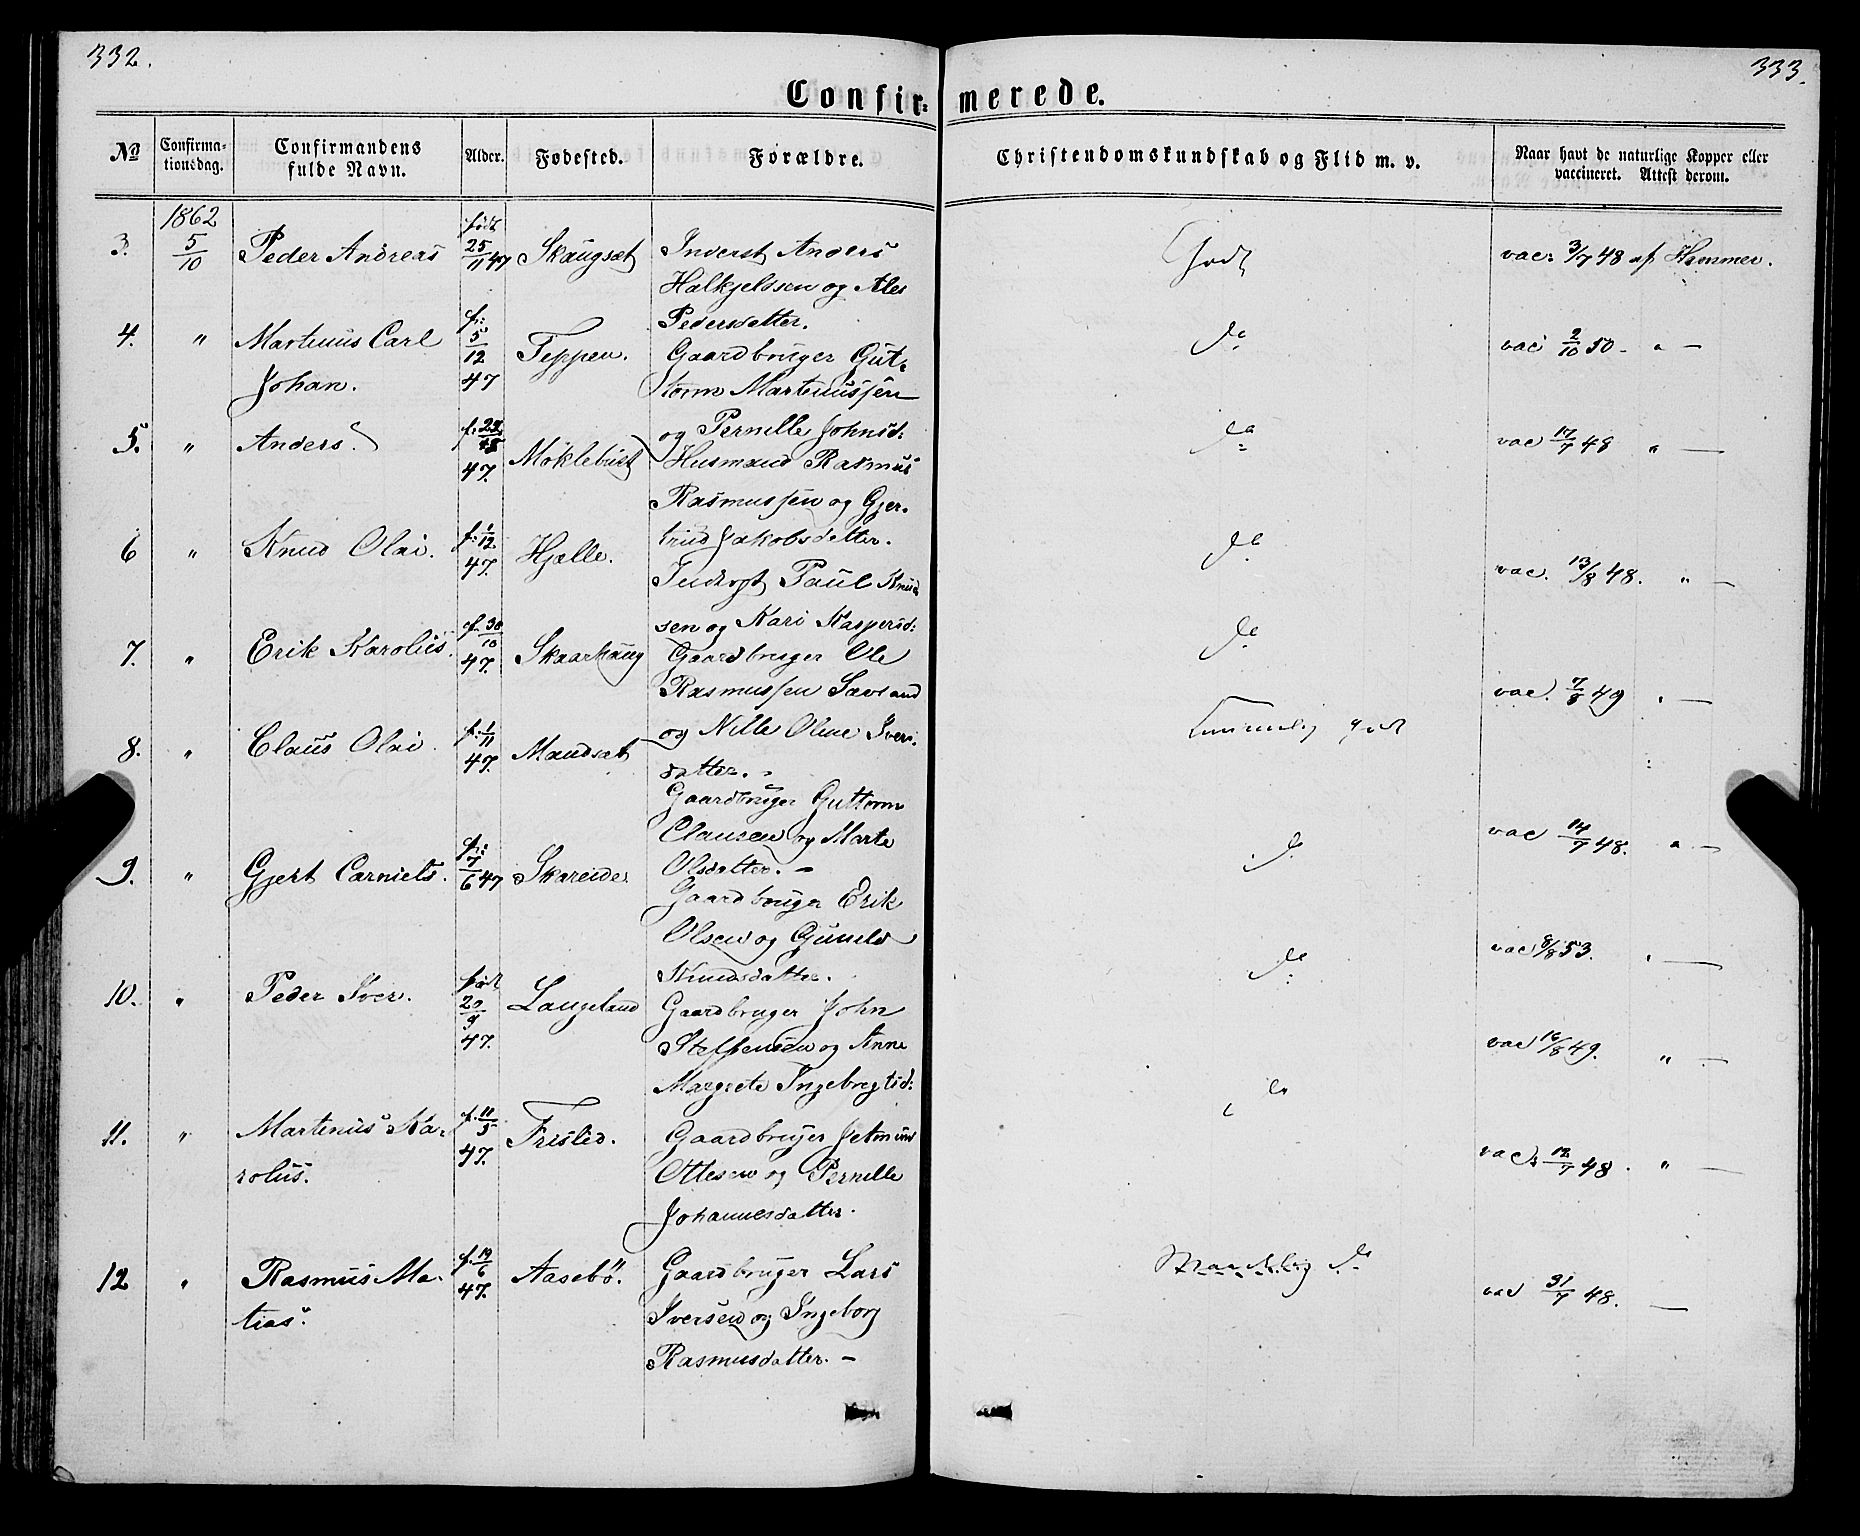 332.
333.
Confir- merede.
No
Confirma-
tionsdag.
Confirmandens
fulde Navn.
Alder.
Fødested.
Forældre.
Christendomskundskab og Flid m. v.
Naar havt de naturlige Kopper eller
vaccineret. Attest derom.
1862
3. 5/10 Peder Andreas født 25/11 47 Skaugsæt Inderst Anders
Halkjelssen og Ales
Pedersdatter.
Godt
vac: 3/7 48 af Hammer.
4. " Martinus Carl
Johan.
f: 5/12 47 Teppen. Gaardbruger Gut-
torm Martinussen
og Pernille Johnsd:
do
vac 2/10 50 - " -
5. " Anders. 47. Møklebust Husmand Rasmus
Rasmussen og Gjer-
trud Jakobsdatter.
do
vac 17/7 48 " -
6 " Knud Olai. f: 1/12 47. Hjelle. Paul Knud-
sen og Kari Kaspersd:
do
vac. 13/8 48. " -
7. " Erik Karolus. f. 30/10 47. Skaarhaug Gaardbruger Ole
Rasmussen
og Nille Oline Iver-
datter. -
do
vac. 7/8 49 " -
8. " Claus Olai. f. 1/11 47. Mandsæt Gaardbruger Guttorm
Clausen og Marte
Olsdatter. -
Temmelig godt
vac 14/7 48. " -
9. " Gjert Carniels. f: 7/6 47 Skareide. Gaardbruger Erik
Olsen og Gunild
Knudsdatter.
do
vac 8/8 53. " -
10. " Peder Iver. født 20/9 47. Langeland Gaardbruger John
Steffensen og Anne
Margrete Ingebregtsd:
do
vac 16/8 49. " -
11. " Martinus Ka-
rolus.
f. 11/5 47. Fristed. Gaardbruger Jetmund
Ottesen og Pernille
Johannesdatter.
do
vac: 12/7 48. " -
12 " Rasmus Ma-
tias.
f. 19/6 47. Aasebø. Gaardbruger Lars
Iversen og Ingeborg
Rasmusdatter. -
do
vac 31/7 48. -